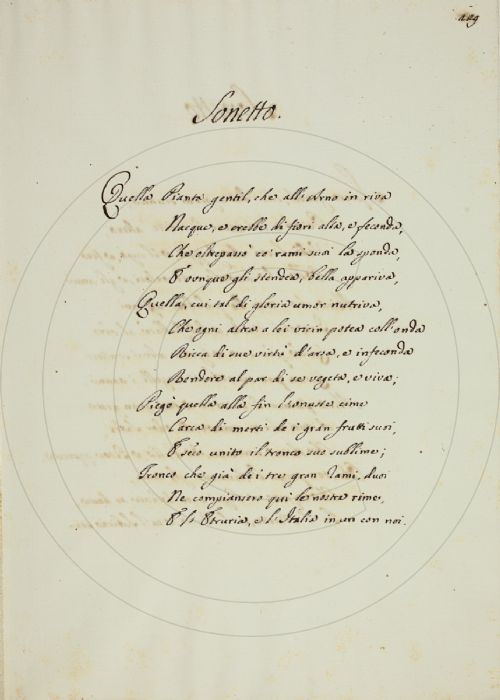 429
Sonetto.
Quella Pianta gentil, che all'Arno in riva
Nacque, e crebbe di fiori alta, e feconda,
Che oltrepassò co' rami suoi la sponda,
E ovunque gli stendea, bella appariva,
Quella, cui tal di gloria umor nutriva,
Che ogni altra a lei vicin potea coll'onda
Ricca di sue virtù d'arsa, e infeconda
Rendere al par di se vegeta, e viva;
Piegò quella alla fin l'onuste cime
Carca di merti de i gran frutti suoi,
E seco unito il tronco suo sublime;
Tronco che già de i tre gran rami, duoi
Ne compiansero qui le nostre rime,
E l' Etruria, e l' Italia in un con noi.